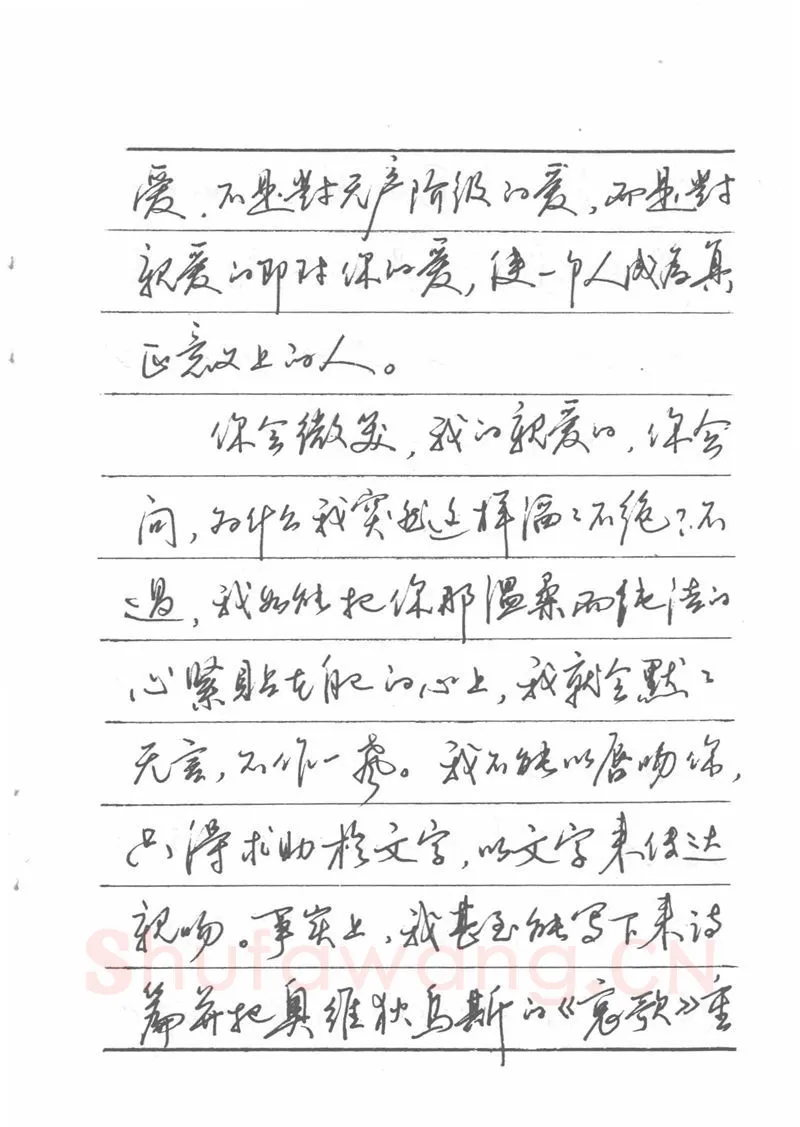 爱，不是對无产阶级的爱，而是對
親爱的即对你的爱，使一个人成为真
正意义上的人。
你会微笑，我的親爱的，你会
问，为什么我突然这样滔々不绝？不
过，我如能把你那温柔而纯洁的
心紧貼在自己的心上，我就会默々
无言，不作一声。我不能以唇吻你，
只得求助於文字，以文字来传达
親吻。事实上，我甚至能写下来诗
篇并把奥维狄乌斯的《哀歌》重
Shufawang.CN